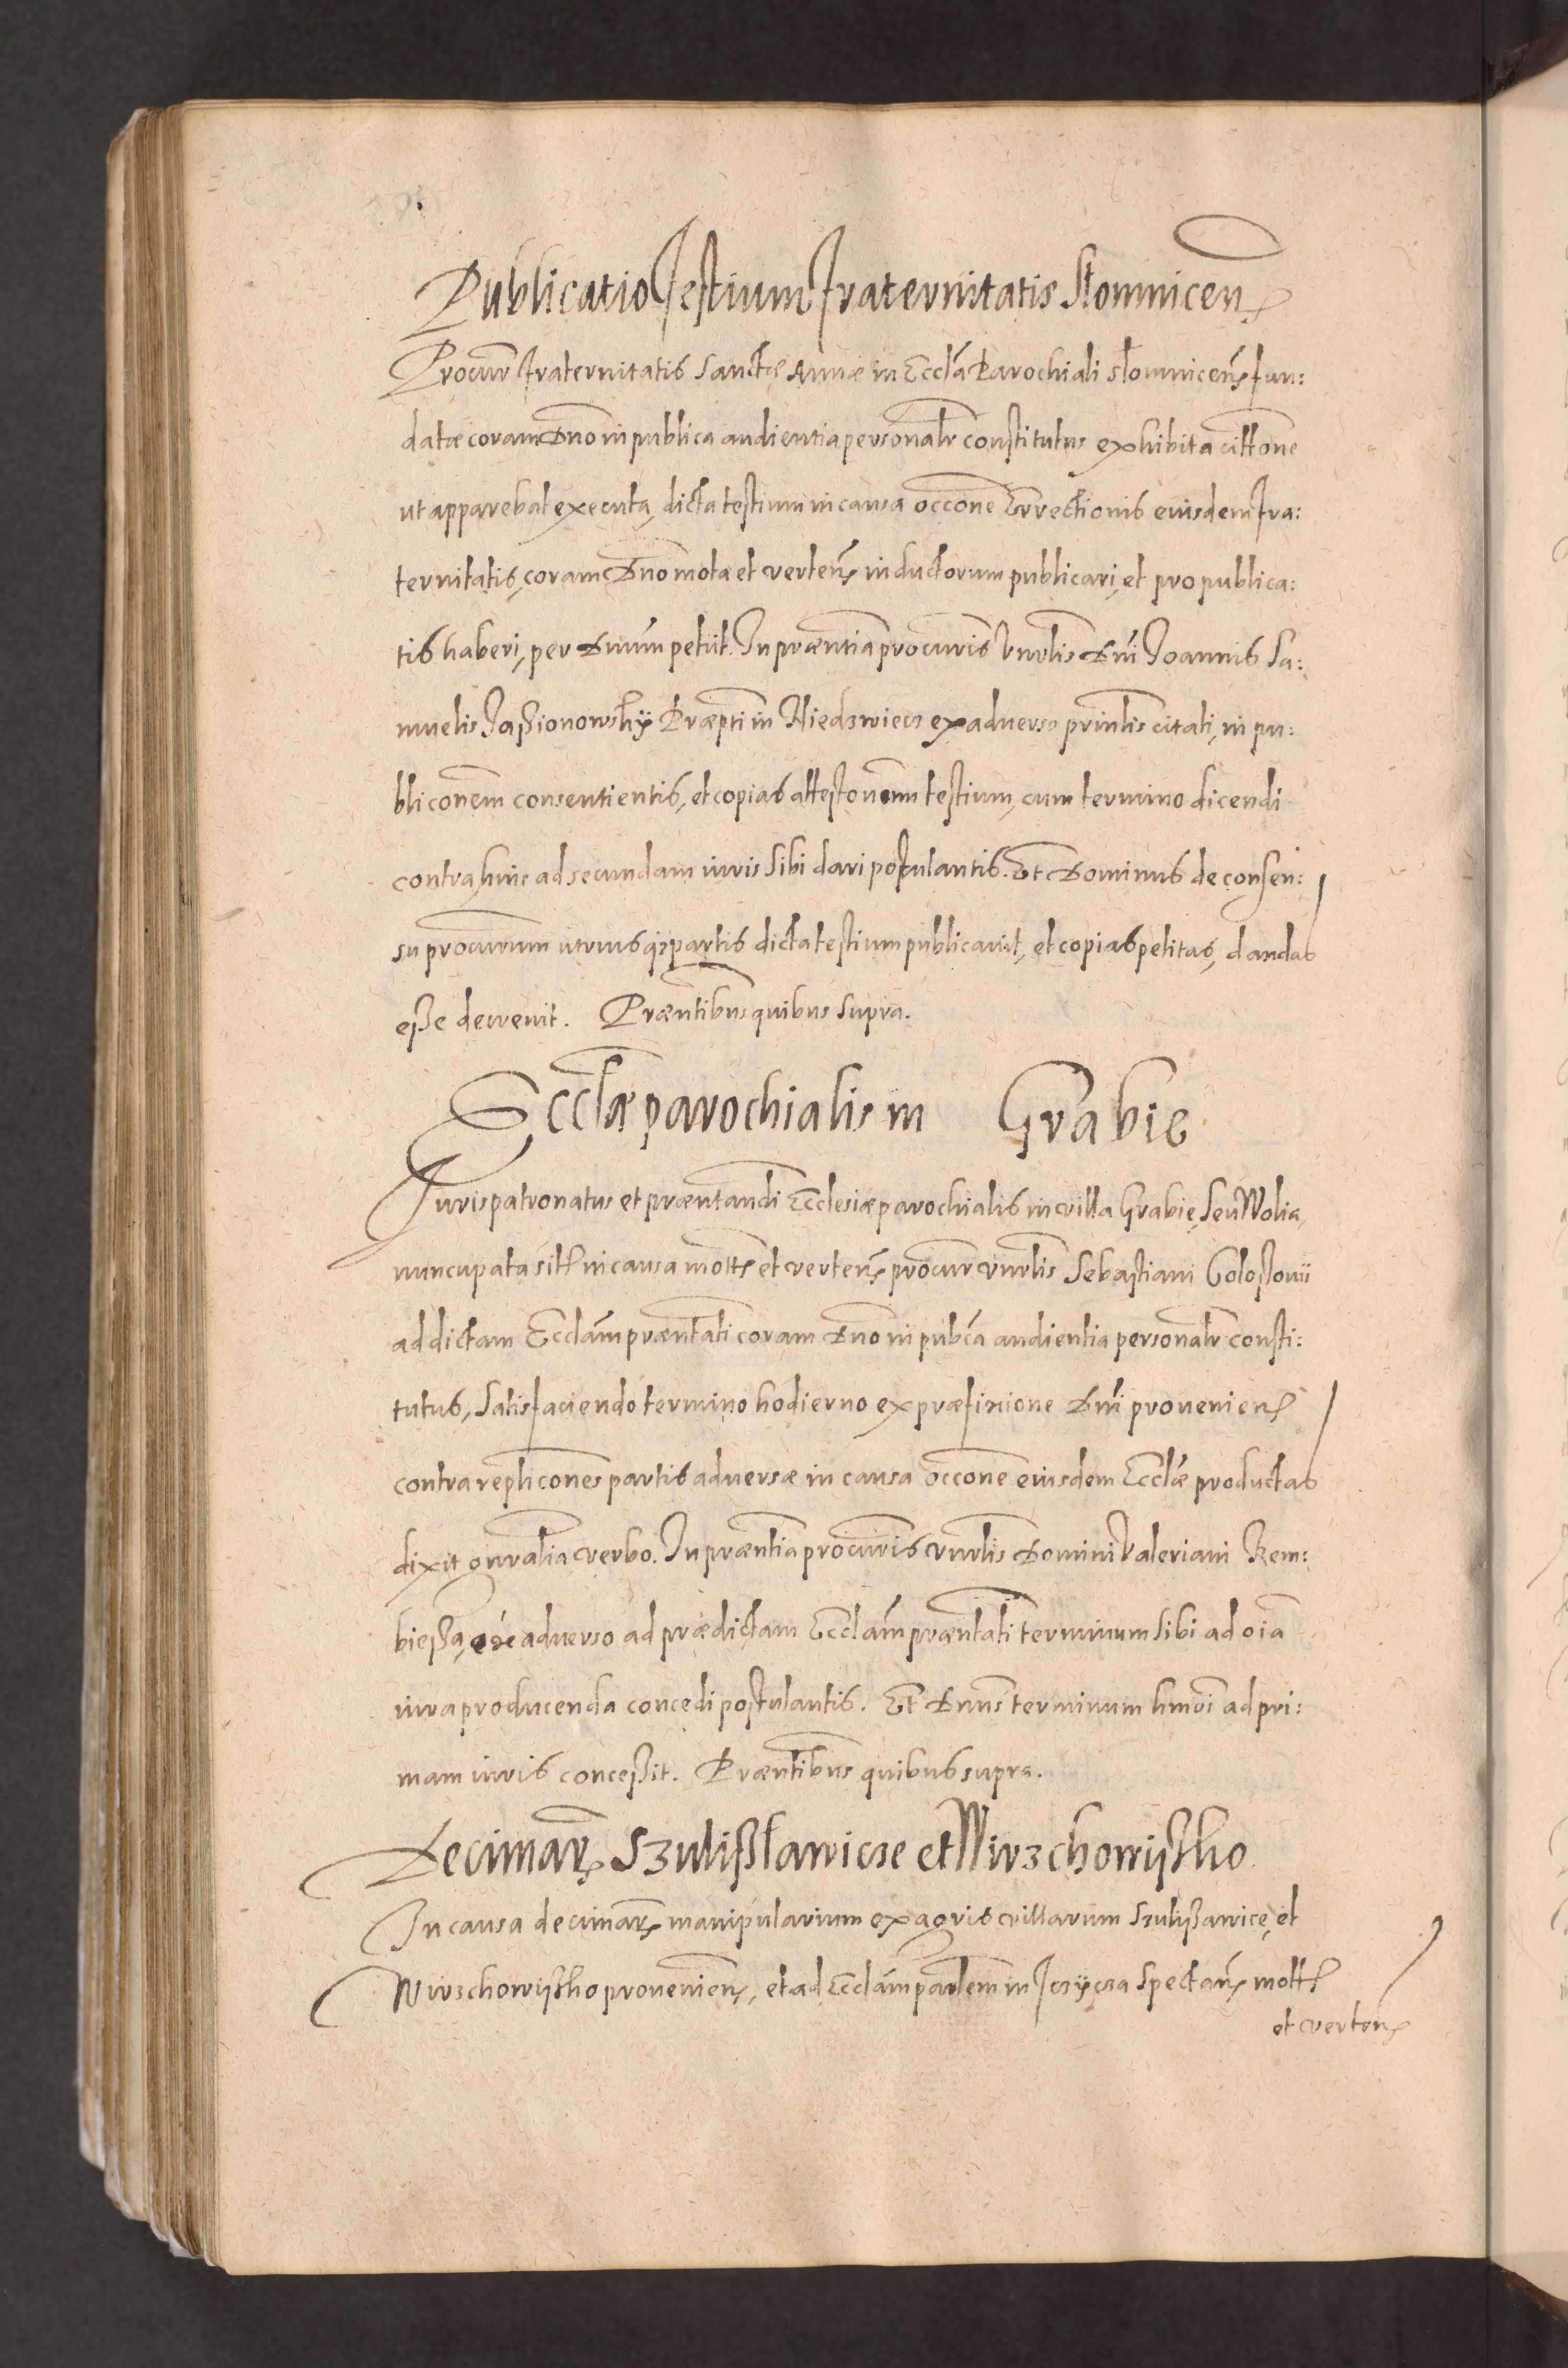 Publicatio Testium Fraternitatis Słomnicen
Procur Fraternitatis Sanctæ Annæ in Eccl̃a Parochiali słomnicen̄ fun:
datæ coram Dno in publica audientia personalr constitutus exhibita citt̃one
ut apparebat executa, dicta testium in causa occ̃one Errectionis eiusdem Fra:
ternitatis, coram Dno mota et verten̄ inductorum publicari, et pro publica:
tis haberi, per Dnūm petiit. In præntia procuris Vnrlis Dnī Joannis Sa:
muelis Jaßionowsky Præpti in Niedzwiecz ex adverso prinlis citati, in pu:
blicōnem consentientis, et copias attestonum testium, cum termino dicendi
contra hinc ad secundam iuris sibi dari postulantis. Et Dominus de consen:
su procurum utriusq; partis dicta testium publicavit, et copias petitas, dandas
eße decrevit. Præntibus quibus supra.
Eccl̃æ parochialis in Grabie
Iurispatronatus et præntandi Ecclesiæ parochialis in villa Grabie, seu Wolia,
nuncupata sitt in causa mott et verten̄ procur vnrlis Sebastiani Golostovii
ad dictam Eccl̃am præntati coram Dno in pubca audientia personalr consti:
tutus, satisfaciendo termino hodierno ex præfixione Dnī provenien̄
contra replicones partis adversæ in causa occone eiusdem Eccl̃æ productas
dixit gnralia verbo. In præntia procuris vnrlis Domini Valeriani Rem:
bießa, ex adverso ad prædictam Eccl̃am præntati terminum sibi ad oīa
iura producenda concedi postulantis. Et Dnus terminum hmōi ad pri:
mam iuris conceßit. Præntibus quibus supra.
Decimar Szulißławicze et Wirzchowistho
In causa decimar manipularium ex agris villarum Szulißawice, et
Wirzchowistho provenien̄, et ad Eccl̃am parlem in Iczycza spectan̄ mott
et verten̄